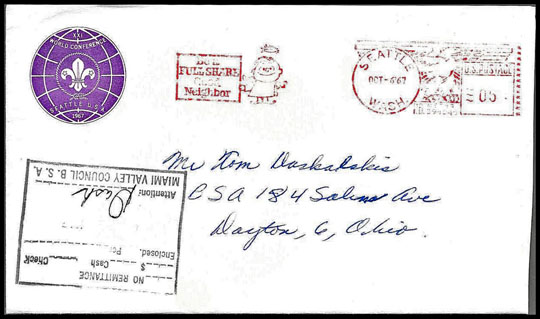 XXI
WORLD CONFERENCE
SEATTLE U.S.A.
1967
FULL SHARE
Neighbor
SEATTLE
OCT-6'67
WASH.
U.S. POSTAGE
05
Mr Tom
BSA 184 Salem Ave
Dayton, 6, Ohio.
MIAMI VALLEY COUNCIL B. S. A.
Attention:
Enclosed. For
$ Cash Check
NO REMITTANCE